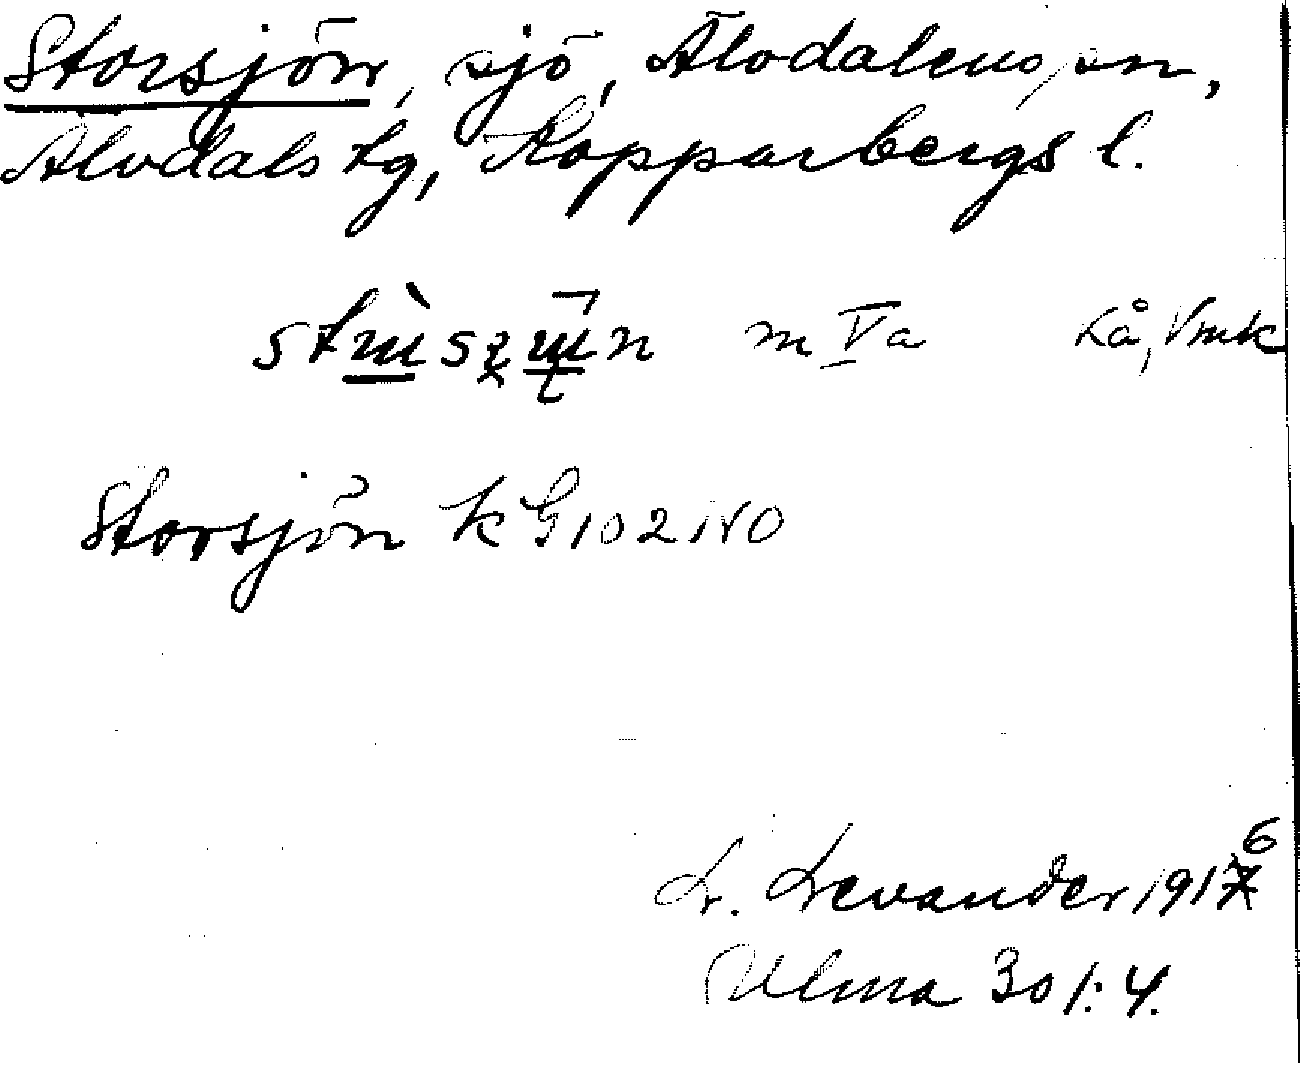 Storsjön, sjö, Älvdalens sn,
Älvdals tg, Kopparbergs l.
m Va Lå, Vmk
Storsjön k G 102 NO
L. Levander 1916
Ulma 301:4.